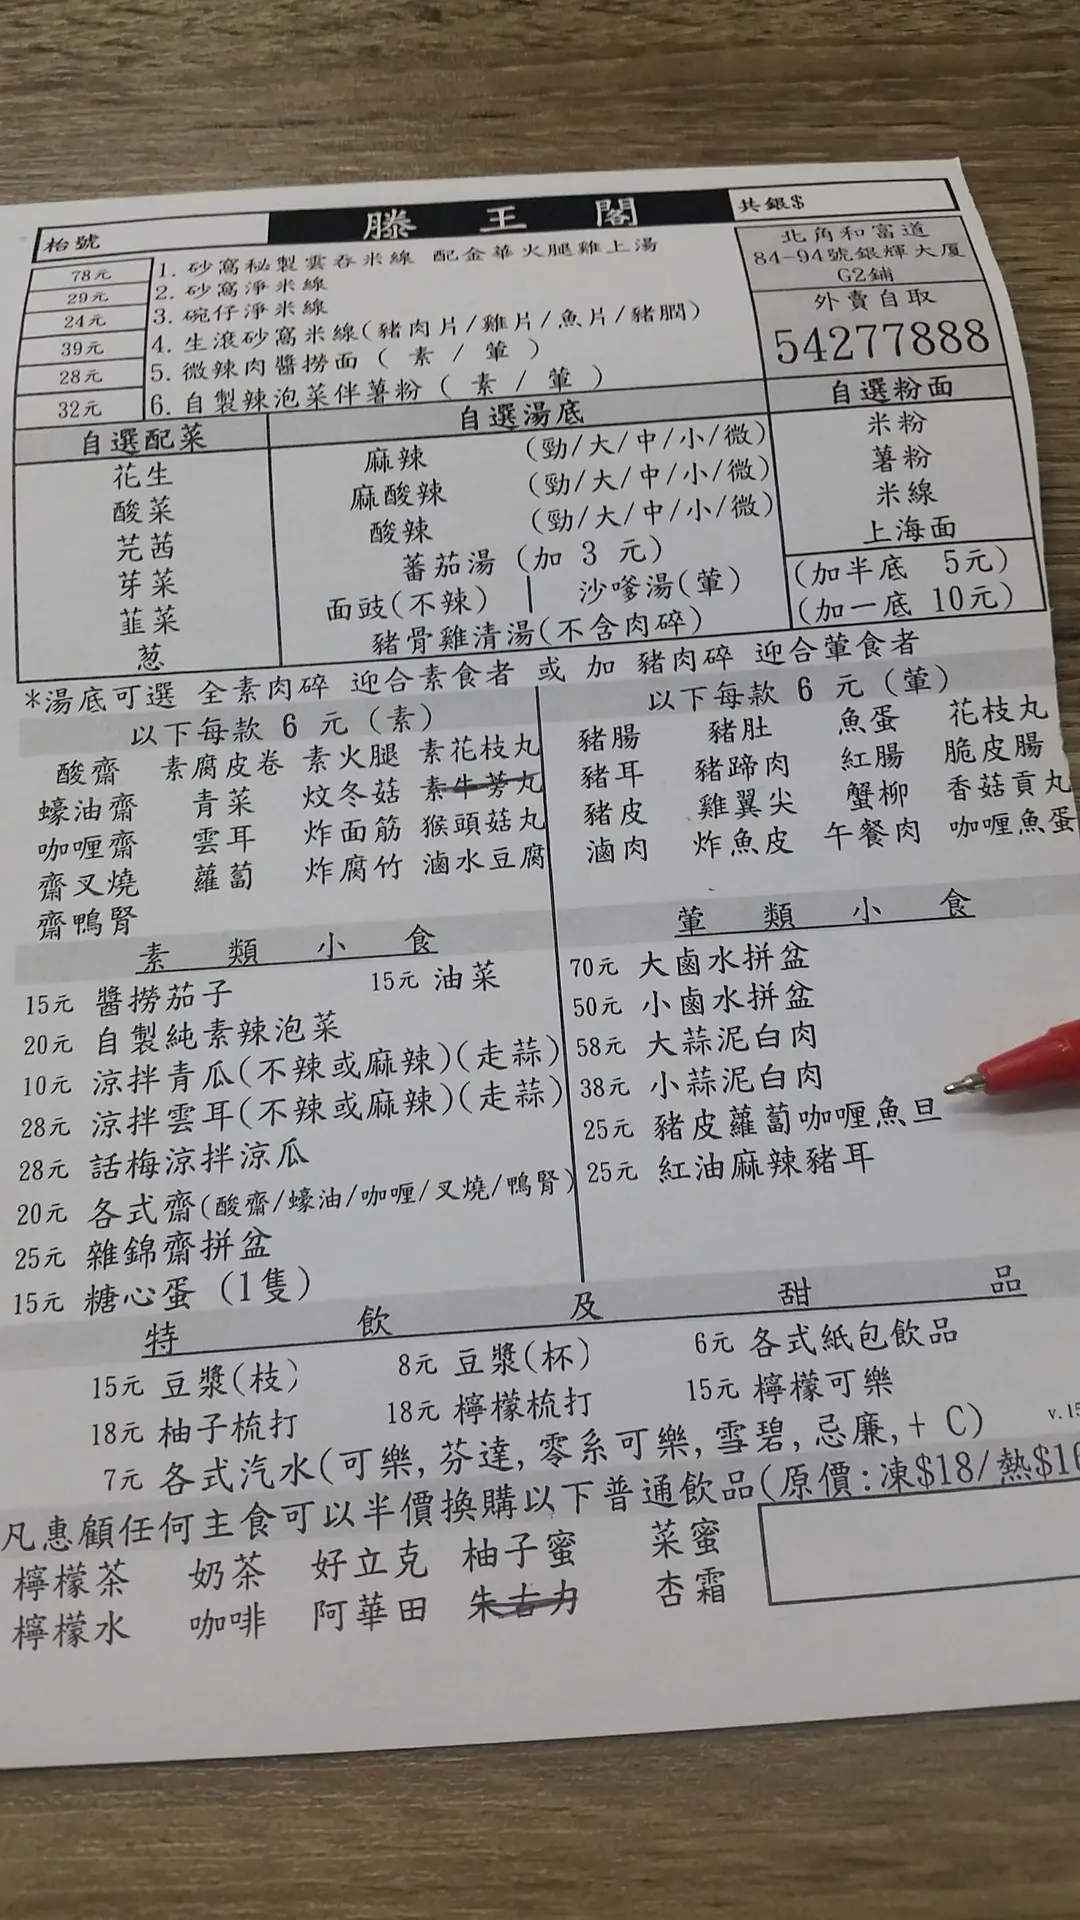 枱號
滕王閣
共銀$
78元 1. 砂窩秘製雲吞米線 配金華火腿雞上湯
29元 2. 砂窩淨米線
24元 3. 碗仔淨米線
39元 4. 生滾砂窩米線(豬肉片/雞片/魚片/豬膶)
28元 5. 微辣肉醬撈面 ( 素 / 葷 )
32元 6. 自製辣泡菜伴薯粉 ( 素 / 葷 )
北角和富道
84-94號銀輝大厦
G2鋪
外賣自取
54277888
自選配菜
花生
酸菜
芫茜
芽菜
韮菜
葱
自選湯底
麻辣 (勁/大/中/小/微)
麻酸辣 (勁/大/中/小/微)
酸辣 (勁/大/中/小/微)
蕃茄湯 (加 3 元)
面豉(不辣) | 沙嗲湯(葷)
豬骨雞清湯(不含肉碎)
自選粉面
米粉
薯粉
米線
上海面
(加半底 5元)
(加一底 10元)
*湯底可選 全素肉碎 迎合素食者 或 加 豬肉碎 迎合葷食者
以下每款 6 元 (素)
酸齋 素腐皮卷 素火腿 素花枝丸
蠔油齋 青菜 炆冬菇 素牛蒡丸
咖喱齋 雲耳 炸面筋 猴頭菇丸
齋叉燒 蘿蔔 炸腐竹 滷水豆腐
齋鴨腎
以下每款 6 元 (葷)
豬腸 豬肚 魚蛋 花枝丸
豬耳 豬蹄肉 紅腸 脆皮腸
豬皮 雞翼尖 蟹柳 香菇貢丸
滷肉 炸魚皮 午餐肉 咖喱魚蛋
素類小食
15元 醬撈茄子 15元 油菜
20元 自製純素辣泡菜
10元 涼拌青瓜(不辣或麻辣)(走蒜)
28元 涼拌雲耳(不辣或麻辣)(走蒜)
28元 話梅涼拌涼瓜
20元 各式齋(酸齋/蠔油/咖喱/叉燒/鴨腎)
25元 雜錦齋拼盆
15元 糖心蛋 (1隻)
葷類小食
70元 大鹵水拼盆
50元 小鹵水拼盆
58元 大蒜泥白肉
38元 小蒜泥白肉
25元 豬皮蘿蔔咖喱魚旦
25元 紅油麻辣豬耳
特飲及甜品
15元 豆漿(枝) 8元 豆漿(杯) 6元 各式紙包飲品
18元 柚子梳打 18元 檸檬梳打 15元 檸檬可樂
7元 各式汽水(可樂,芬達,零系可樂,雪碧,忌廉,+ C)
v.15
凡惠顧任何主食可以半價換購以下普通飲品(原價:凍$18/熱$16
檸檬茶 奶茶 好立克 柚子蜜 菜蜜
檸檬水 咖啡 阿華田 朱古力 杏霜